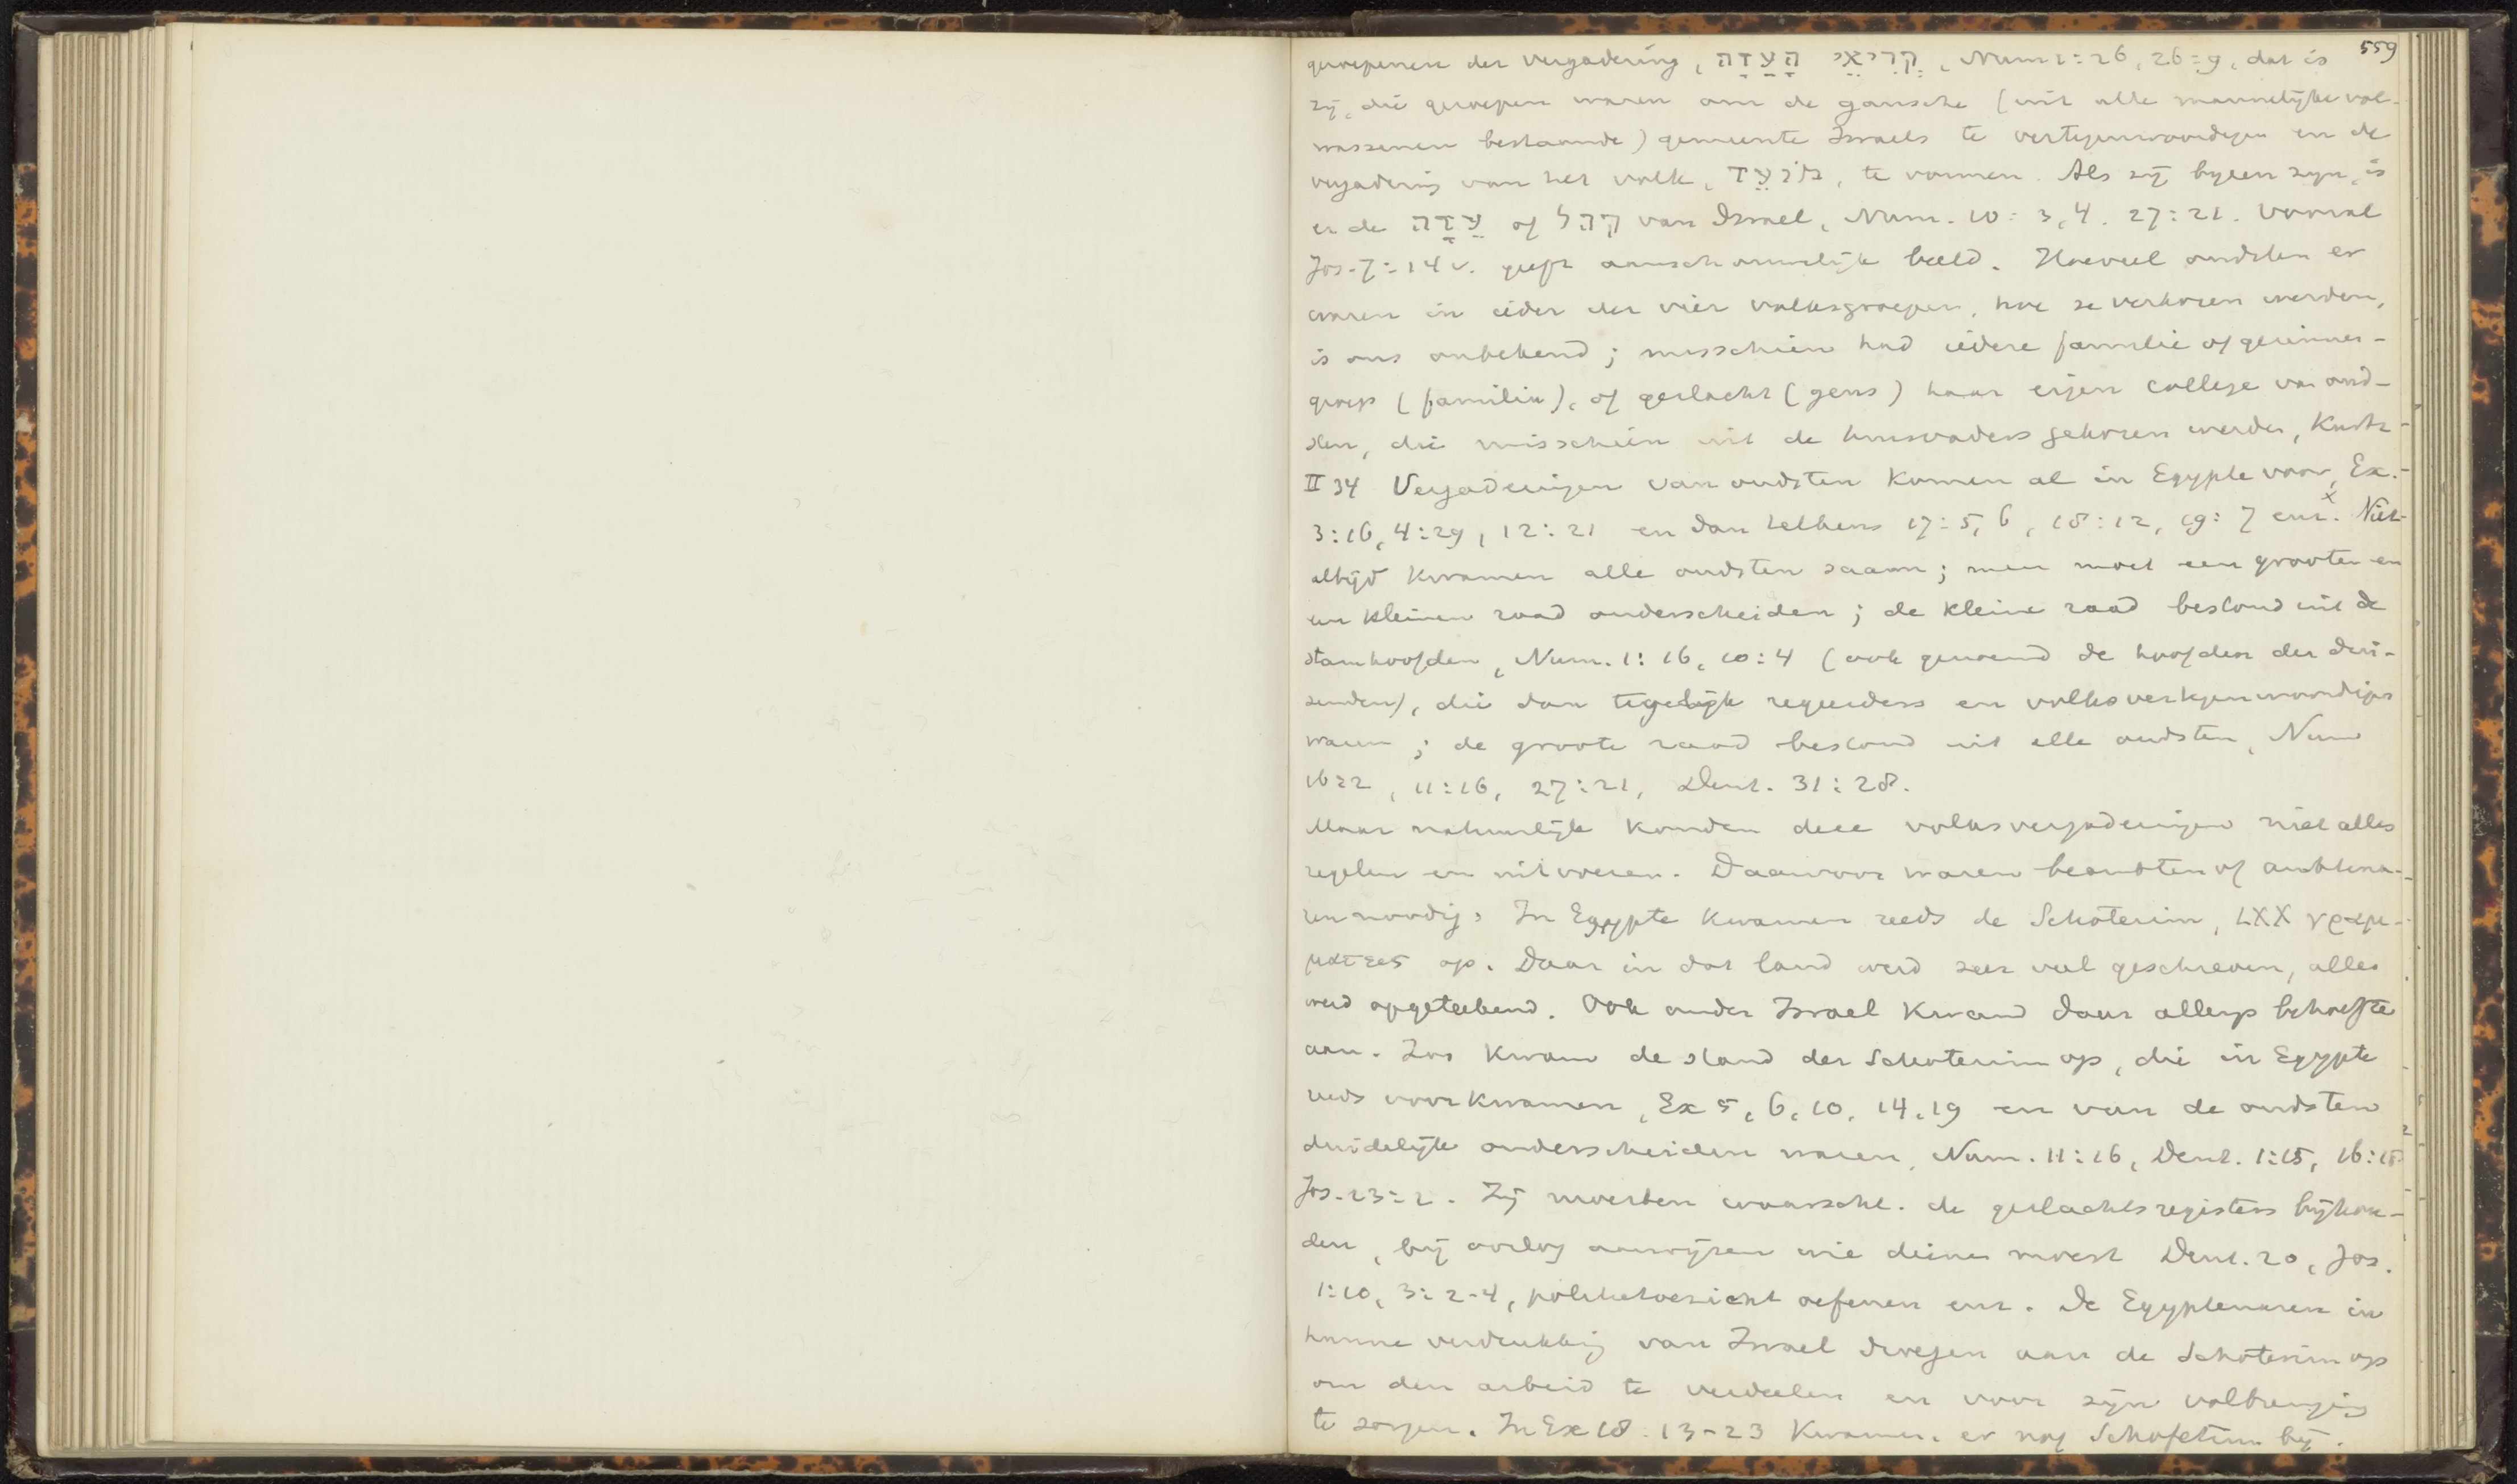 559
geroepenen der vergadering, קְרִיאֵי הָעֵדָה, Num 1:16, 26:9, dat is
zij, die geroepen waren om de gansche (uit alle mannelijke vol-
wassenen bestaande) gemeente Israels te vertegenwoordigen en de
vergadering van het volk, מוֹעֵד, te vormen. Als zij byeen zyn, is
er de עֵדָה of קהל van Israel, Num. 10:3,4. 27:21. Vooral
Jos. 7:14v. geeft aanschouwelijk beeld. Hoeveel oudsten er
waren in ieder der vier volksgroepen, hoe ze verkozen werden,
is ons onbekend; misschien had iedere familie of gezinnen-
groep (familia), of geslacht (gens) haar eigen college van oud-
sten, die misschien uit de huisvaders gekozen werden, Kurtz
II 34 Vergaderingen van oudsten komen al in Egypte voor, Ex.
3:16, 4:29, 12:21 en dan telkens 17:5,6, 18:12, 19:7 enz.x Niet
altijd kwamen alle oudsten saam; men moet een grooten en
een kleinen raad onderscheiden; de kleine raad bestond uit de
stamhoofden, Num. 1:16, 10:4 (ook genoemd de hoofden der dui-
zenden), die dan tegelijk regeerders en volksvertegenwoordigers
waren; de groote raad bestond uit alle oudsten, Num
16:2, 11:16, 27:21, Deut. 31:28.
Maar natuurlijk konden deze volksvergaderingen niet alles
regelen en uitvoeren. Daarvoor waren beambten of ambtena-
ren noodig. In Egypte kwamen reeds de Schoterim, LXX γραμ-
ματεες op. Daar in dat land werd zeer veel geschreven, alles
werd opgeteekend. Ook onder Israel kwam daar allengs behoefte
aan. Zoo kwam de stand der Schoterim op, die in Egypte
reeds voorkwamen, Ex 5, 6, 10, 14, 19 en van de oudsten
duidelijk onderscheiden waren, Num. 11:16, Deut. 1:15, 16:18
Jos. 23:2. Zij moesten waarschl. de geslachtsregisters bijhou-
den, bij oorlog aanwijzen wie dienen moest Deut. 20, Jos.
1:10, 3:2-4, politietoezicht oefenen enz. De Egyptenaren in
hunne verdrukking van Israel droegen aan de Schoterim op
om den arbeid te verdeelen en voor zijn volbrenging
te zorgen. In Ex 18:13-23 kwamen er nog Schofetim bij.